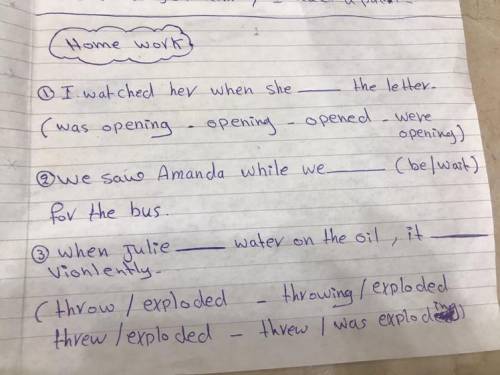 Home work
① I watched her when she ___ the letter.
(was opening - opening - opened - were
opening)
② we saw Amanda while we ___ (be/wait)
for the bus.
③ when Julie ___ water on the oil, it ___
vionlently.
(throw / exploded - throwing / exploded
threw / exploded - threw / was exploding)